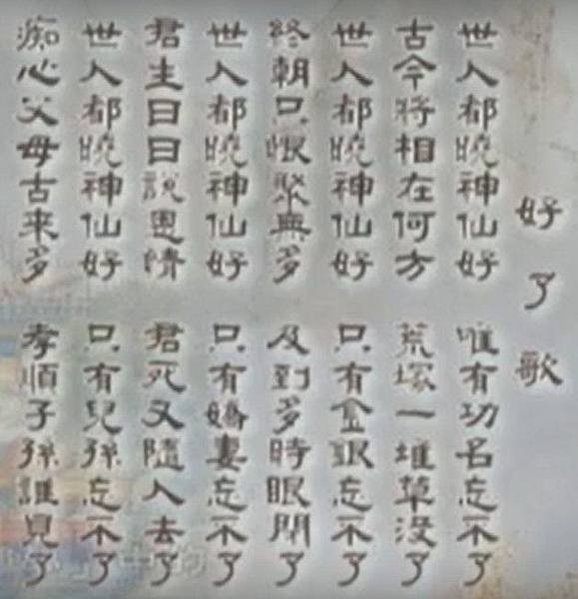 好了歌
世人都曉神仙好 唯有功名忘不了
古今將相在何方 荒塚一堆草沒了
世人都曉神仙好 只有金銀忘不了
終朝只恨聚無多 及到多時眼閉了
世人都曉神仙好 只有嬌妻忘不了
君生日日說恩情 君死又隨人去了
世人都曉神仙好 只有兒孫忘不了
痴心父母古来多 孝順子孫誰見了